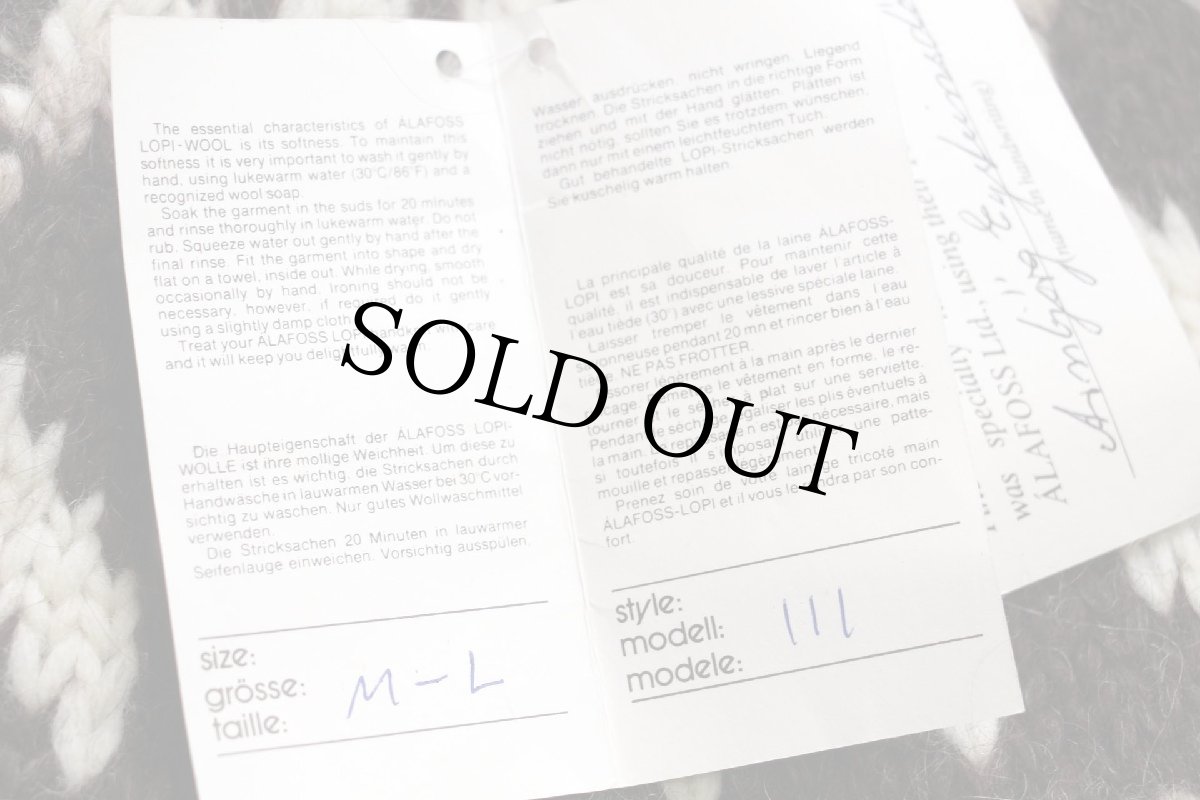 The essential characteristics of ÁLAFOSS
LOPI-WOOL is its softness. To maintain this
softness it is very important to wash it gently by
hand, using lukewarm water (30°C/86°F) and a
recognized wool soap.
Soak the garment in the suds for 20 minutes
and rinse thoroughly in lukewarm water. Do not
rub. Squeeze water out gently by hand after the
final rinse. Fit the garment into shape and dry
flat on a towel, inside out. While drying, smooth
occasionally by hand. Ironing should not be
necessary, however, if required do it gently
using a slightly damp cloth
Treat your ÁLAFOSS LOPI care
and it will keep you delightfully warm
Die Haupteigenschaft der ÁLAFOSS LOPI-
WOLLE ist ihre mollige Weichheit. Um diese zu
erhalten ist es wichtig, die Stricksachen durch
Handwäsche in lauwarmen Wasser bei 30°C vor-
sichtig zu waschen. Nur gutes Wollwaschmittel
verwenden.
Die Stricksachen 20 Minuten in lauwarmer
Seifenlauge einweichen. Vorsichtig ausspülen,
size:
grösse:
taille:
M-L
Wasser ausdrücken, nicht wringen. Liegend
trocknen. Die Stricksachen in die richtige Form
ziehen und mit der Hand glätten. Plätten ist
nicht nötig, sollten Sie es trotzdem wünschen,
dann nur mit einem leichtfeuchtem Tuch.
Gut behandelte LOPI-Stricksachen werden
Sie kuschelig warm halten.
La principale qualité de la laine ÁLAFOSS-
LOPI est sa douceur. Pour maintenir cette
qualité, il est indispensable de laver l'article à
l'eau tiède (30°) avec une lessive speciale laine.
Laisser tremper le vêtement dans l'eau
savonneuse pendant 20 mn et rincer bien à l'eau
tiède. NE PAS FROTTER.
Essorer légèrement à la main après le dernier
remettre le vêtement en forme, le re-
tourner et le sécher à plat sur une serviette.
Pendant le séchage égaliser les plis éventuels à
la main. Le repassage n'est pas nécessaire, mais
si toutefois il s'imposait utiliser une patte-
mouille et repasser légèrement
Prenez soin de votre lainage tricoté main
ÁLAFOSS-LOPI et il vous le rendra par son con-
fort.
style:
modell:
modele:
111
was specially
ÁLAFOSS Ltd., using their
(name
SOLD OUT